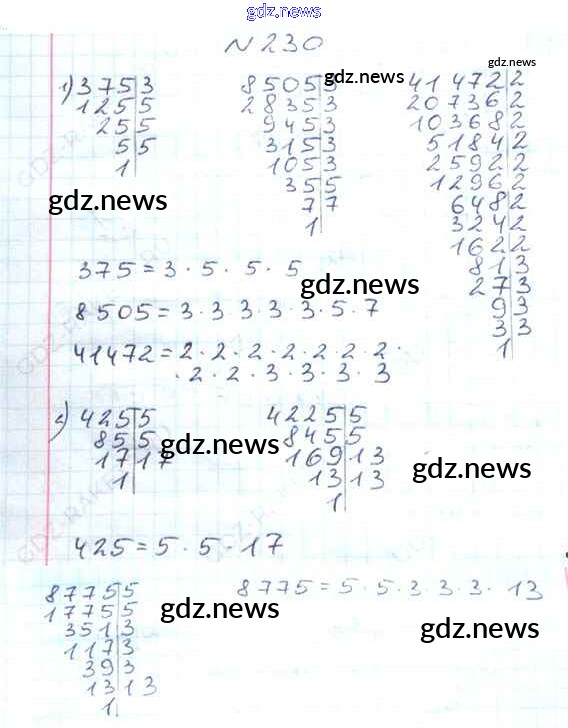 gdz.news
N 230
1) 375|3
125|5
25|5
5|5
1
8505|3
2835|3
945|3
315|3
105|3
35|5
7|7
1
gdz.news
gdz.news
41472|2
20736|2
10368|2
5184|2
2592|2
1296|2
648|2
324|2
162|2
81|3
27|3
9|3
3|3
1
gdz.news
375 = 3 · 5 · 5 · 5
gdz.news
8505 = 3 · 3 · 3 · 3 · 3 · 5 · 7
41472 = 2 · 2 · 2 · 2 · 2 · 2 · 2 ·
· 2 · 2 · 3 · 3 · 3 · 3
2) 425|5
85|5
17|17
1
gdz.news
4225|5
845|5
169|13
13|13
1
gdz.news
425 = 5 · 5 · 17
8775|5
1775|5
351|3
117|3
39|3
13|13
1
gdz.news
8775 = 5 · 5 · 3 · 3 · 3 · 13
gdz.news